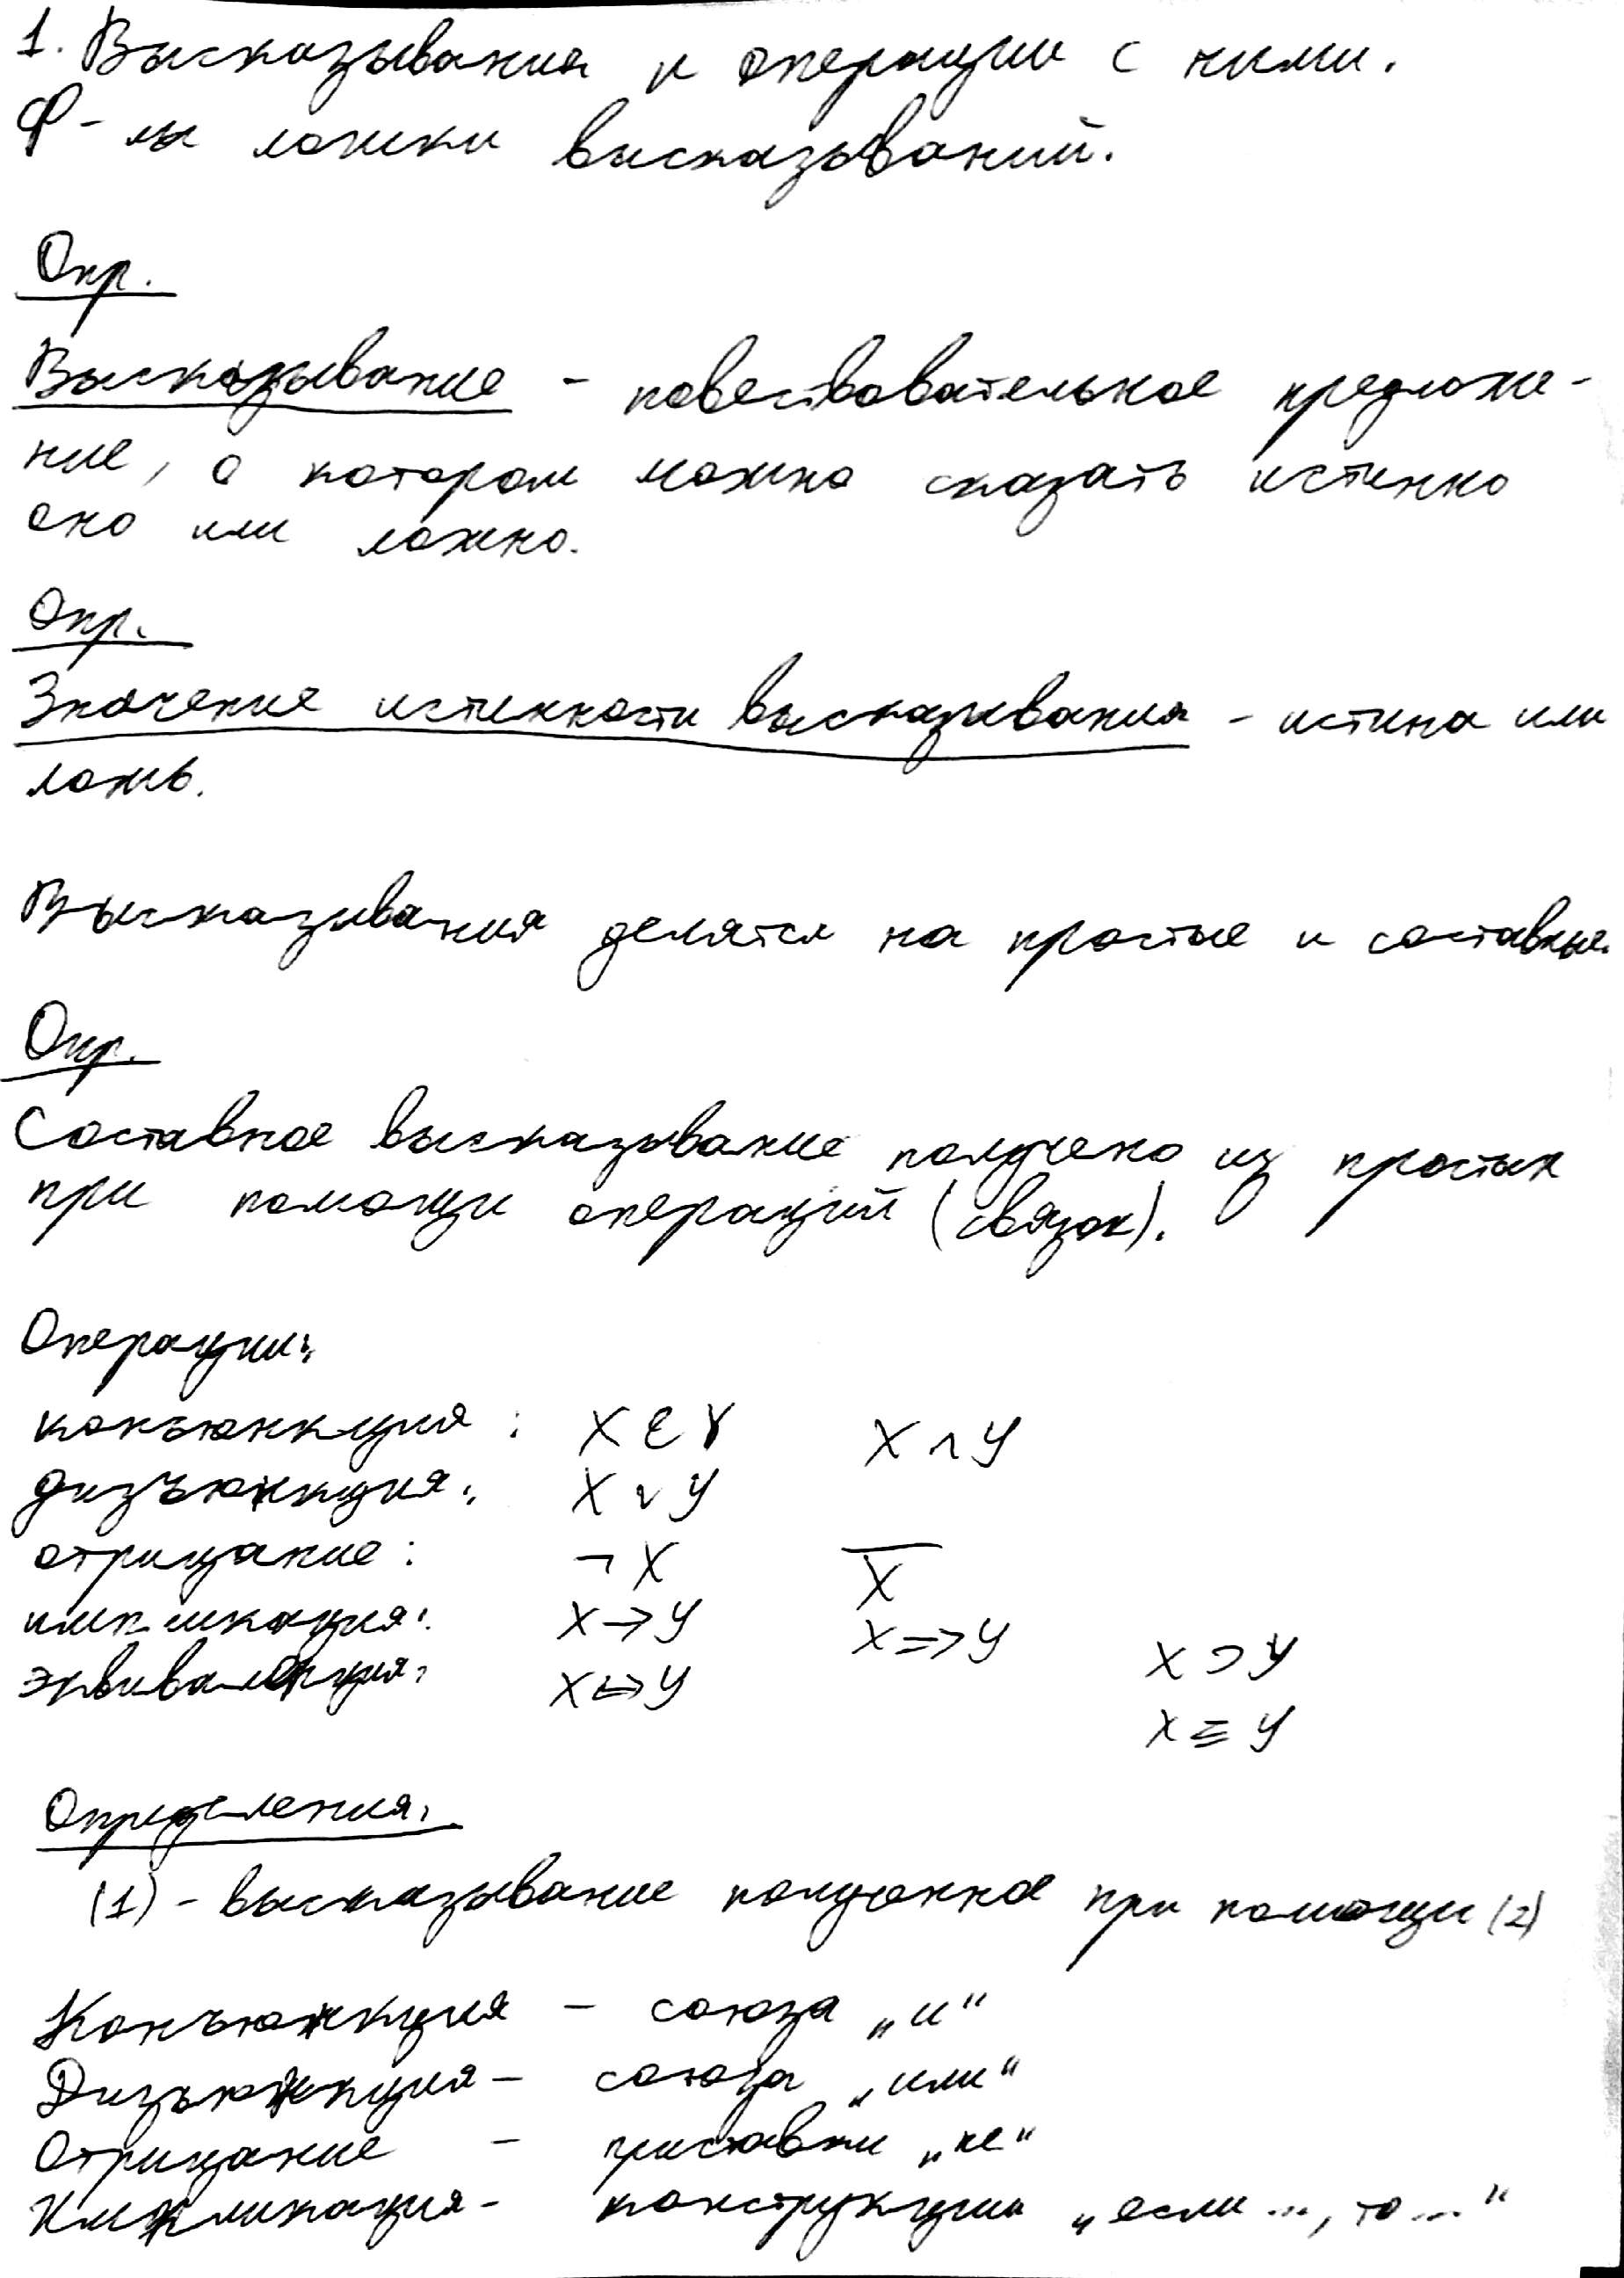 1. Высказывания и операции с ними.
Ф-лы логики высказываний.
Опр.
Высказывание - повествовательное предложе-
ние, о котором можно сказать истинно
оно или ложно.
Опр.
Значение истинности высказывания - истина или
ложь.
Высказывания делятся на простые и составные.
Опр.
Составное высказывание получено из простых
при помощи операций (связок).
Операции:
конъюнкция: X & Y X ∧ Y
дизъюнкция: X ∨ Y
отрицание: ¬X X̅
импликация: X → Y X => Y X ⊃ Y
эквиваленция: X <=> Y X ≡ Y
Определения:
(1) - высказывание полученное при помощи (2)
Конъюнкция - союза „и“
Дизъюнкция - союза „или“
Отрицание - приставки „не“
Импликация - конструкции „если ..., то ...“